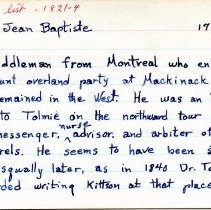 list - 1821-4
Jean Baptiste 17
ddleman from Montreal who en
unt overland party at Mackinack
remained in the West. He was an
to Tolmie on the northward tour
nessenger, nurse, advisor, and arbiter of
rels. He seems to have been
squally later, as in 1840 Dr. To
ded writing Kittson at that place